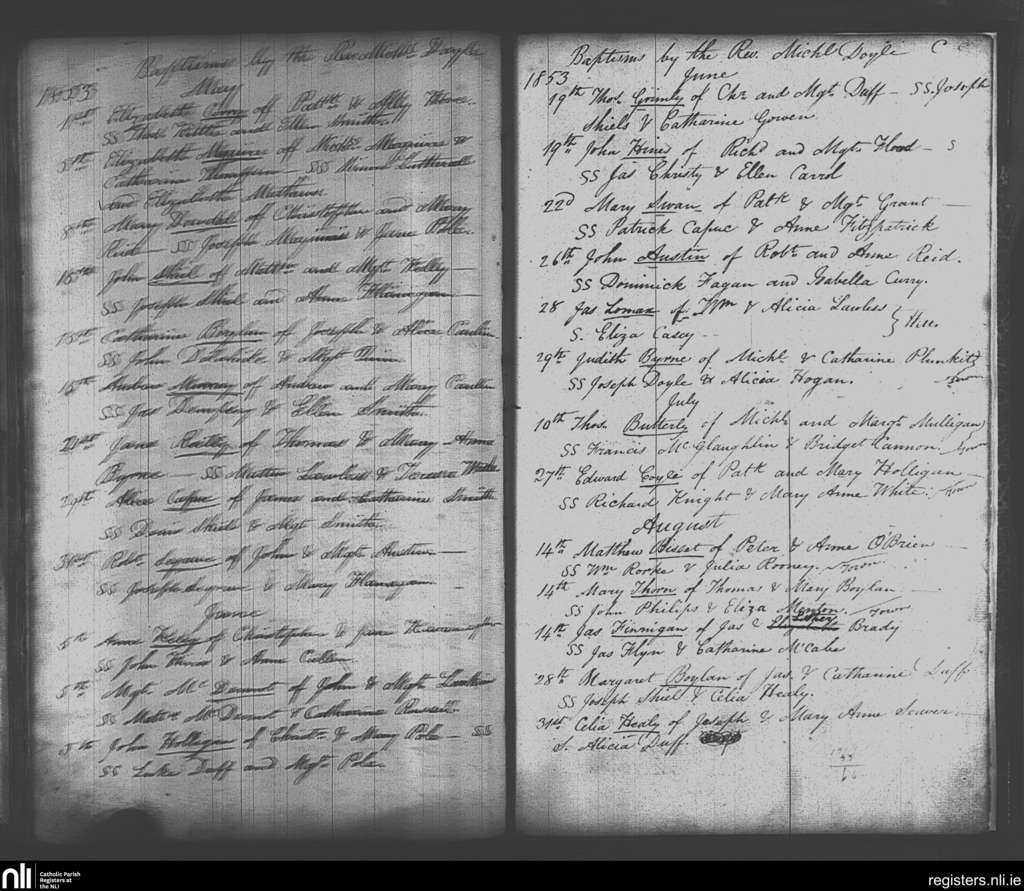 Baptisms by the Rev. Michl. Doyle
1853
May
1st Elizabeth of Pattk & Ally
SS Thos and Ellen Smith
5th Elizabeth Maguire of Mattw. Maguire &
Catharine SS
and Elizabeth Mathews
8th Mary Dowdell of Christopher and Mary
Reid SS Joseph Maginnis & Jane Pole.
15th John Shiel of Mattw. and Mgt. Kelly —
SS Joseph Shiel and Anne Flanagan —
15th Catharine Boylan of Joseph & Alice
SS John & Mgt.
15th Andrew Murray of Andrew and Mary
SS Jas Dempsey & Ellen Smith
21st Jane Reilly of Thomas & Mary Anne
Byrne SS Matthw Lawless & Teresa
29th Alice Capuc of James and Catharine Smith
SS Denis Shiels & Mgt. Smith.
31st Robt. Segrave of John & Mgt. Austin —
SS Joseph Segrave & Mary Flanagan
June
5th Anne of Christopher & Jane
SS John & Anne Cullen
5th Mgt. Mc Dermot of John & Mgt.
SS Mattw Mc Dermot & Catharine Russell.
5th John Holligan of Christr. & Mary Pole — SS
SS Luke Duff and Mgt. Pole.
Baptisms by the Rev. Michl. Doyle C
1853
June
19th Thos. Grimly of Chr. and Mgt. Daff — SS. Joseph
Shiels & Catharine Gowen
19th John Hine of Richd and Mgt. Flood — S
SS Jas Christy & Ellen Carrol
22d Mary Swan of Patk & Mgt. Grant —
SS Patrick Capuc & Anne Fitzpatrick
26th John Austin of Robt. and Anne Reid.
SS Dominick Fagan and Isabella Curry.
28 Jas Lomax of Wm & Alicia Lawless
S. Eliza Casey — } Hill
29th Judith Byrne of Michl. & Catharine Plunkit
SS Joseph Doyle & Alicia Hogan. Town
July
10th Thos. Butterly of Michl. and Margt. Mulligan
SS Francis McGlaughlin & Bridget Cannon. Town
27th Edward Coyle of Patk and Mary Holligan —
SS Richard Knight & Mary Anne White. Town
August
14th Matthew Bisset of Peter & Anne O'Brien —
SS Wm Rorke & Julia Rooney. Town
14th Mary Thorn of Thomas & Mary Boylan —
SS John Philips & Eliza Menton. Town
14th Jas Finnigan of Jas & Brady
SS Jas Flyn & Catharine McCabe
28th Margaret Boylan of Jas. & Catharine Duff
SS Joseph Shiel & Celia Healy.
31st Celia Healy of Joseph & Mary Anne Seaver.
S. Alicia Duff.
nli Catholic Parish
Registers at
the NLI
registers.nli.ie